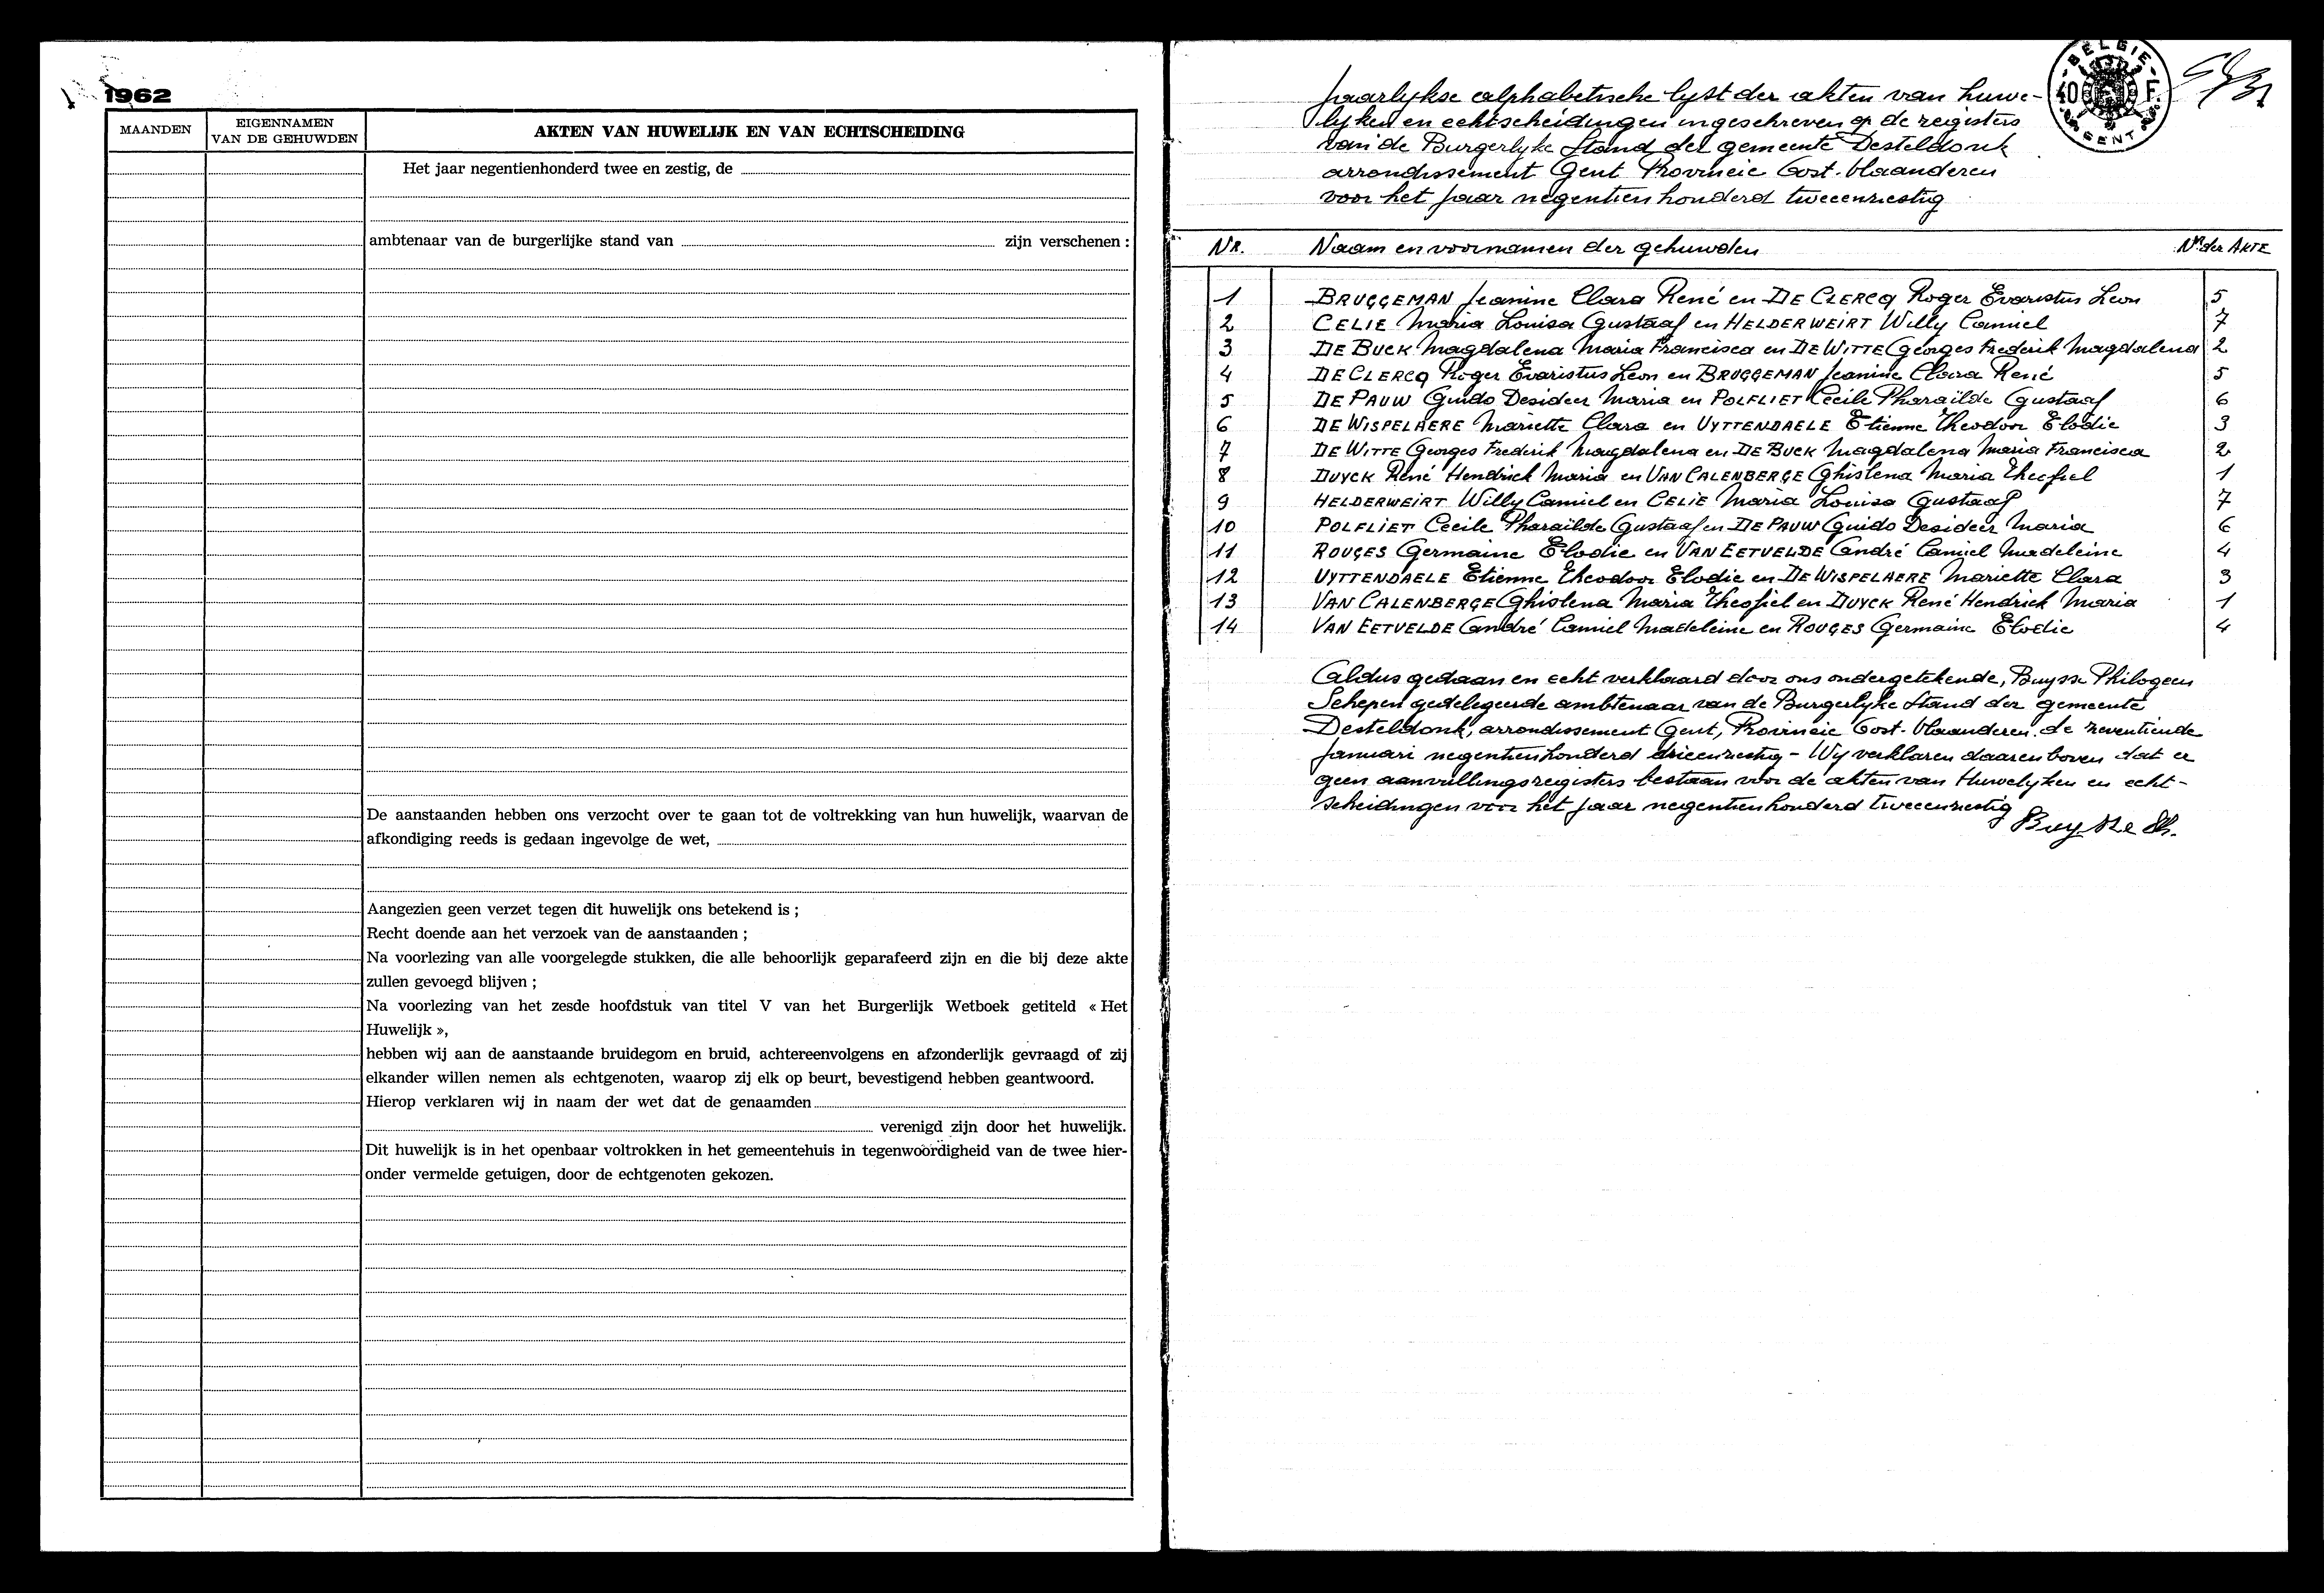 1962
MAANDEN
EIGENNAMEN
VAN DE GEHUWDEN
AKTEN VAN HUWELIJK EN VAN ECHTSCHEIDING
Het jaar negentienhonderd twee en zestig, de
ambtenaar van de burgerlijke stand van zijn verschenen :
De aanstaanden hebben ons verzocht over te gaan tot de voltrekking van hun huwelijk, waarvan de
afkondiging reeds is gedaan ingevolge de wet,
Aangezien geen verzet tegen dit huwelijk ons betekend is ;
Recht doende aan het verzoek van de aanstaanden ;
Na voorlezing van alle voorgelegde stukken, die alle behoorlijk geparafeerd zijn en die bij deze akte
zullen gevoegd blijven ;
Na voorlezing van het zesde hoofdstuk van titel V van het Burgerlijk Wetboek getiteld « Het
Huwelijk »,
hebben wij aan de aanstaande bruidegom en bruid, achtereenvolgens en afzonderlijk gevraagd of zij
elkander willen nemen als echtgenoten, waarop zij elk op beurt, bevestigend hebben geantwoord.
Hierop verklaren wij in naam der wet dat de genaamden
verenigd zijn door het huwelijk.
Dit huwelijk is in het openbaar voltrokken in het gemeentehuis in tegenwoordigheid van de twee hier-
onder vermelde getuigen, door de echtgenoten gekozen.
BELGIE
40 F.
GENT
Jaarlykse alphabetische lyst der akten van huwe-
lyken en echtscheidingen ingeschreven op de registers
van de Burgerlyke Stand der gemeente Desteldonk
arrondissement Gent Provincie Oost-Vlaanderen
voor het jaar negentienhonderd tweeenzestig
NR. Naam en voornamen der gehuwden Nr der AKTE
1 BRUGGEMAN Jeanine Clara René en DE CLERCQ Roger Evaristus Leon 5
2 CELIE Maria Louisa Gustaaf en HELDERWEIRT Willy Camiel 7
3 DE BUCK Magdalena Maria Francisca en DE WITTE Georges Frederik Magdalena 2
4 DE CLERCQ Roger Evaristus Leon en BRUGGEMAN Jeanine Clara René 5
5 DE PAUW Guido Desideer Maria en POLFLIET Cecile Pharailde Gustaaf 6
6 DE WISPELAERE Mariette Clara en UYTTENDAELE Etienne Theodoor Elodie 3
7 DE WITTE Georges Frederik Magdalena en DE BUCK Magdalena Maria Francisca 2
8 DUYCK René Hendrick Maria en VAN CALENBERGE Ghislena Maria Theofiel 1
9 HELDERWEIRT Willy Camiel en CELIE Maria Louisa Gustaaf 7
10 POLFLIET Cecile Pharailde Gustaaf en DE PAUW Guido Desideer Maria 6
11 ROUGES Germaine Elodie en VAN EETVELDE André Camiel Madeleine 4
12 UYTTENDAELE Etienne Theodoor Elodie en DE WISPELAERE Mariette Clara 3
13 VAN CALENBERGE Ghislena Maria Theofiel en DUYCK René Hendrick Maria 1
14 VAN EETVELDE André Camiel Madeleine en ROUGES Germaine Elodie 4
Aldus gedaan en echt verklaard door ons ondergetekende, Buysse Philogeen
Schepen gedelegeerde ambtenaar van de Burgerlyke Stand der gemeente
Desteldonk, arrondissement Gent, Provincie Oost-Vlaanderen de zeventiende
Januari negentienhonderd drieenzestig - Wy verklaren daarenboven dat er
geen aanvullingsregisters bestaan voor de akten van Huwelyken en echt-
scheidingen voor het jaar negentienhonderd tweeenzestig
Buysse Ph.